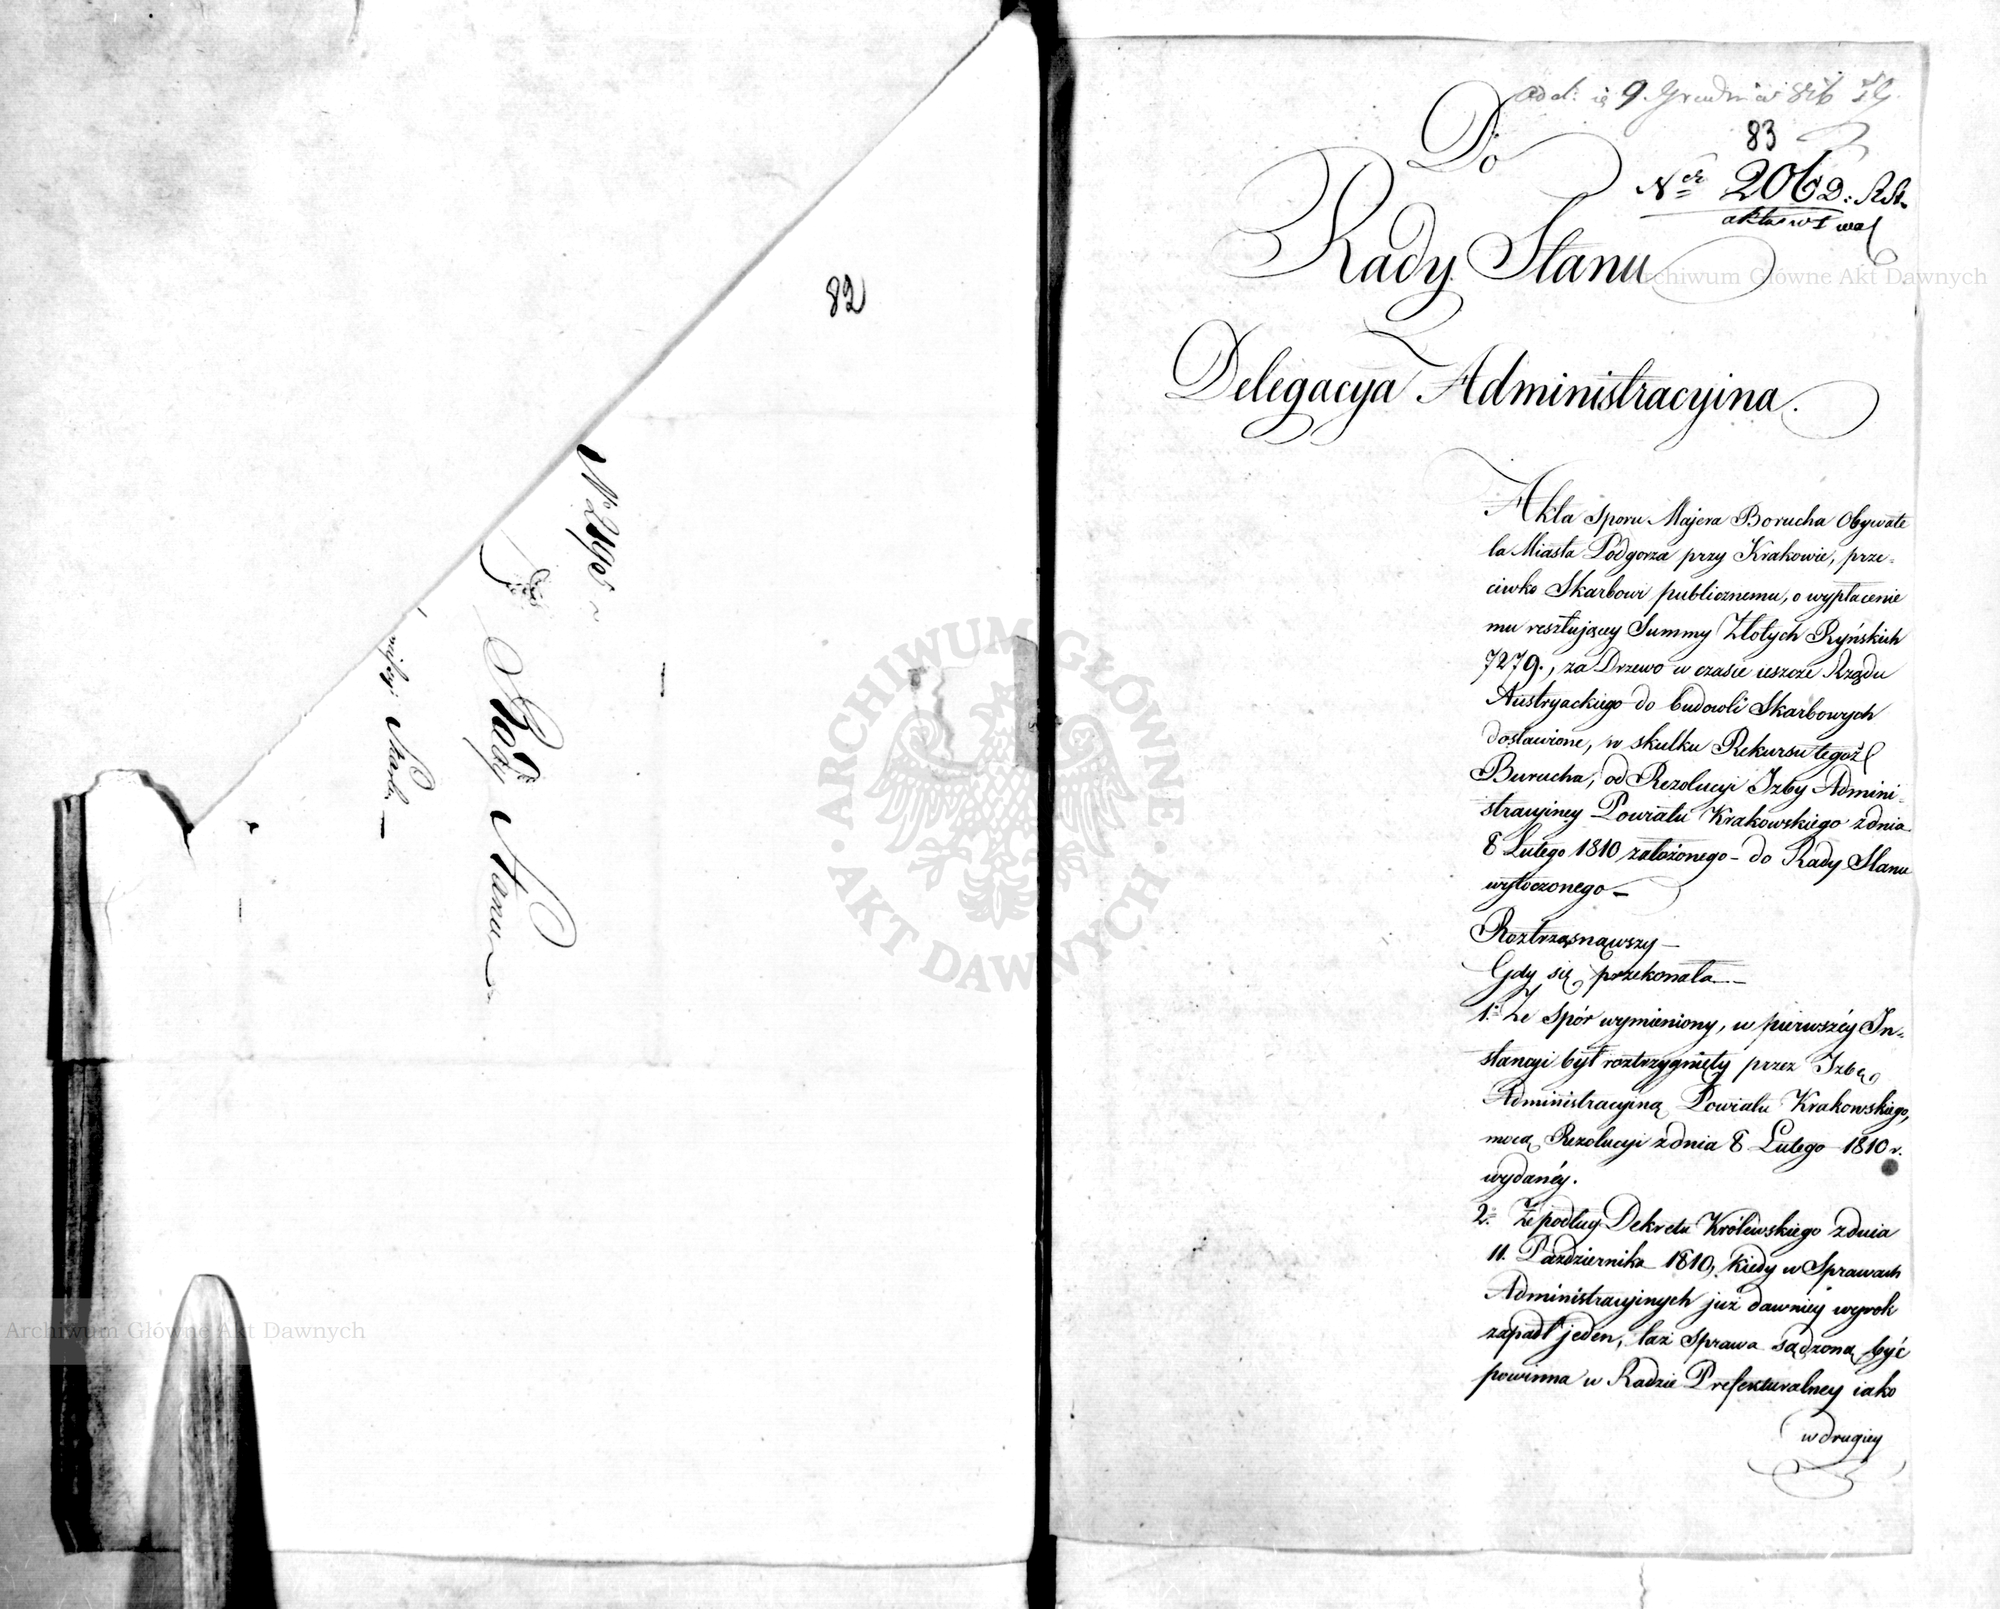 82
Do
Rady Stanu
83
Do
Nro 206 D: R.St.
Rady Stanu
Delegacya Administracyina.
Akta sporu Majera Borucha Obywate
la Miasta Podgorza przy Krakowie, prze-
ciwko Skarbowi publicznemu, o wypłacenie
mu resztuiącey Summy Złotych Ryńskich
7279., za Drzewo w czasie ieszcze Rządu
Austryackiego do budowli Skarbowych
dostawione, w skutku Rekursu tegoż
Burucha, od Rezolucyi Izby Admini-
stracyiney Powiatu Krakowskiego z dnia
8 Lutego 1810 założonego - do Rady Stanu
wytoczonego -
Roztrząsnąwszy -
Gdy się przekonała -
1. Że Spór wymieniony, w pierwszéy In-
stancyi był roztrzygnięty przez Izbę
Administracyiną Powiatu Krakowskiego,
mocą Rezolucyi z dnia 8 Lutego 1810 r.
wydanéy.
2. Że podług Dekretu Królewskiego z dnia
11. Października 1810, kiedy w Sprawach
Administracyinych już dawniey wyrok
zapadł jeden, taż sprawa sądzoną być
powinna w Radzie Prefekturalney iako
w drugiey
Archiwum Główne Akt Dawnych
Archiwum Główne Akt Dawnych
ARCHIWUM GŁÓWNE
AKT DAWNYCH